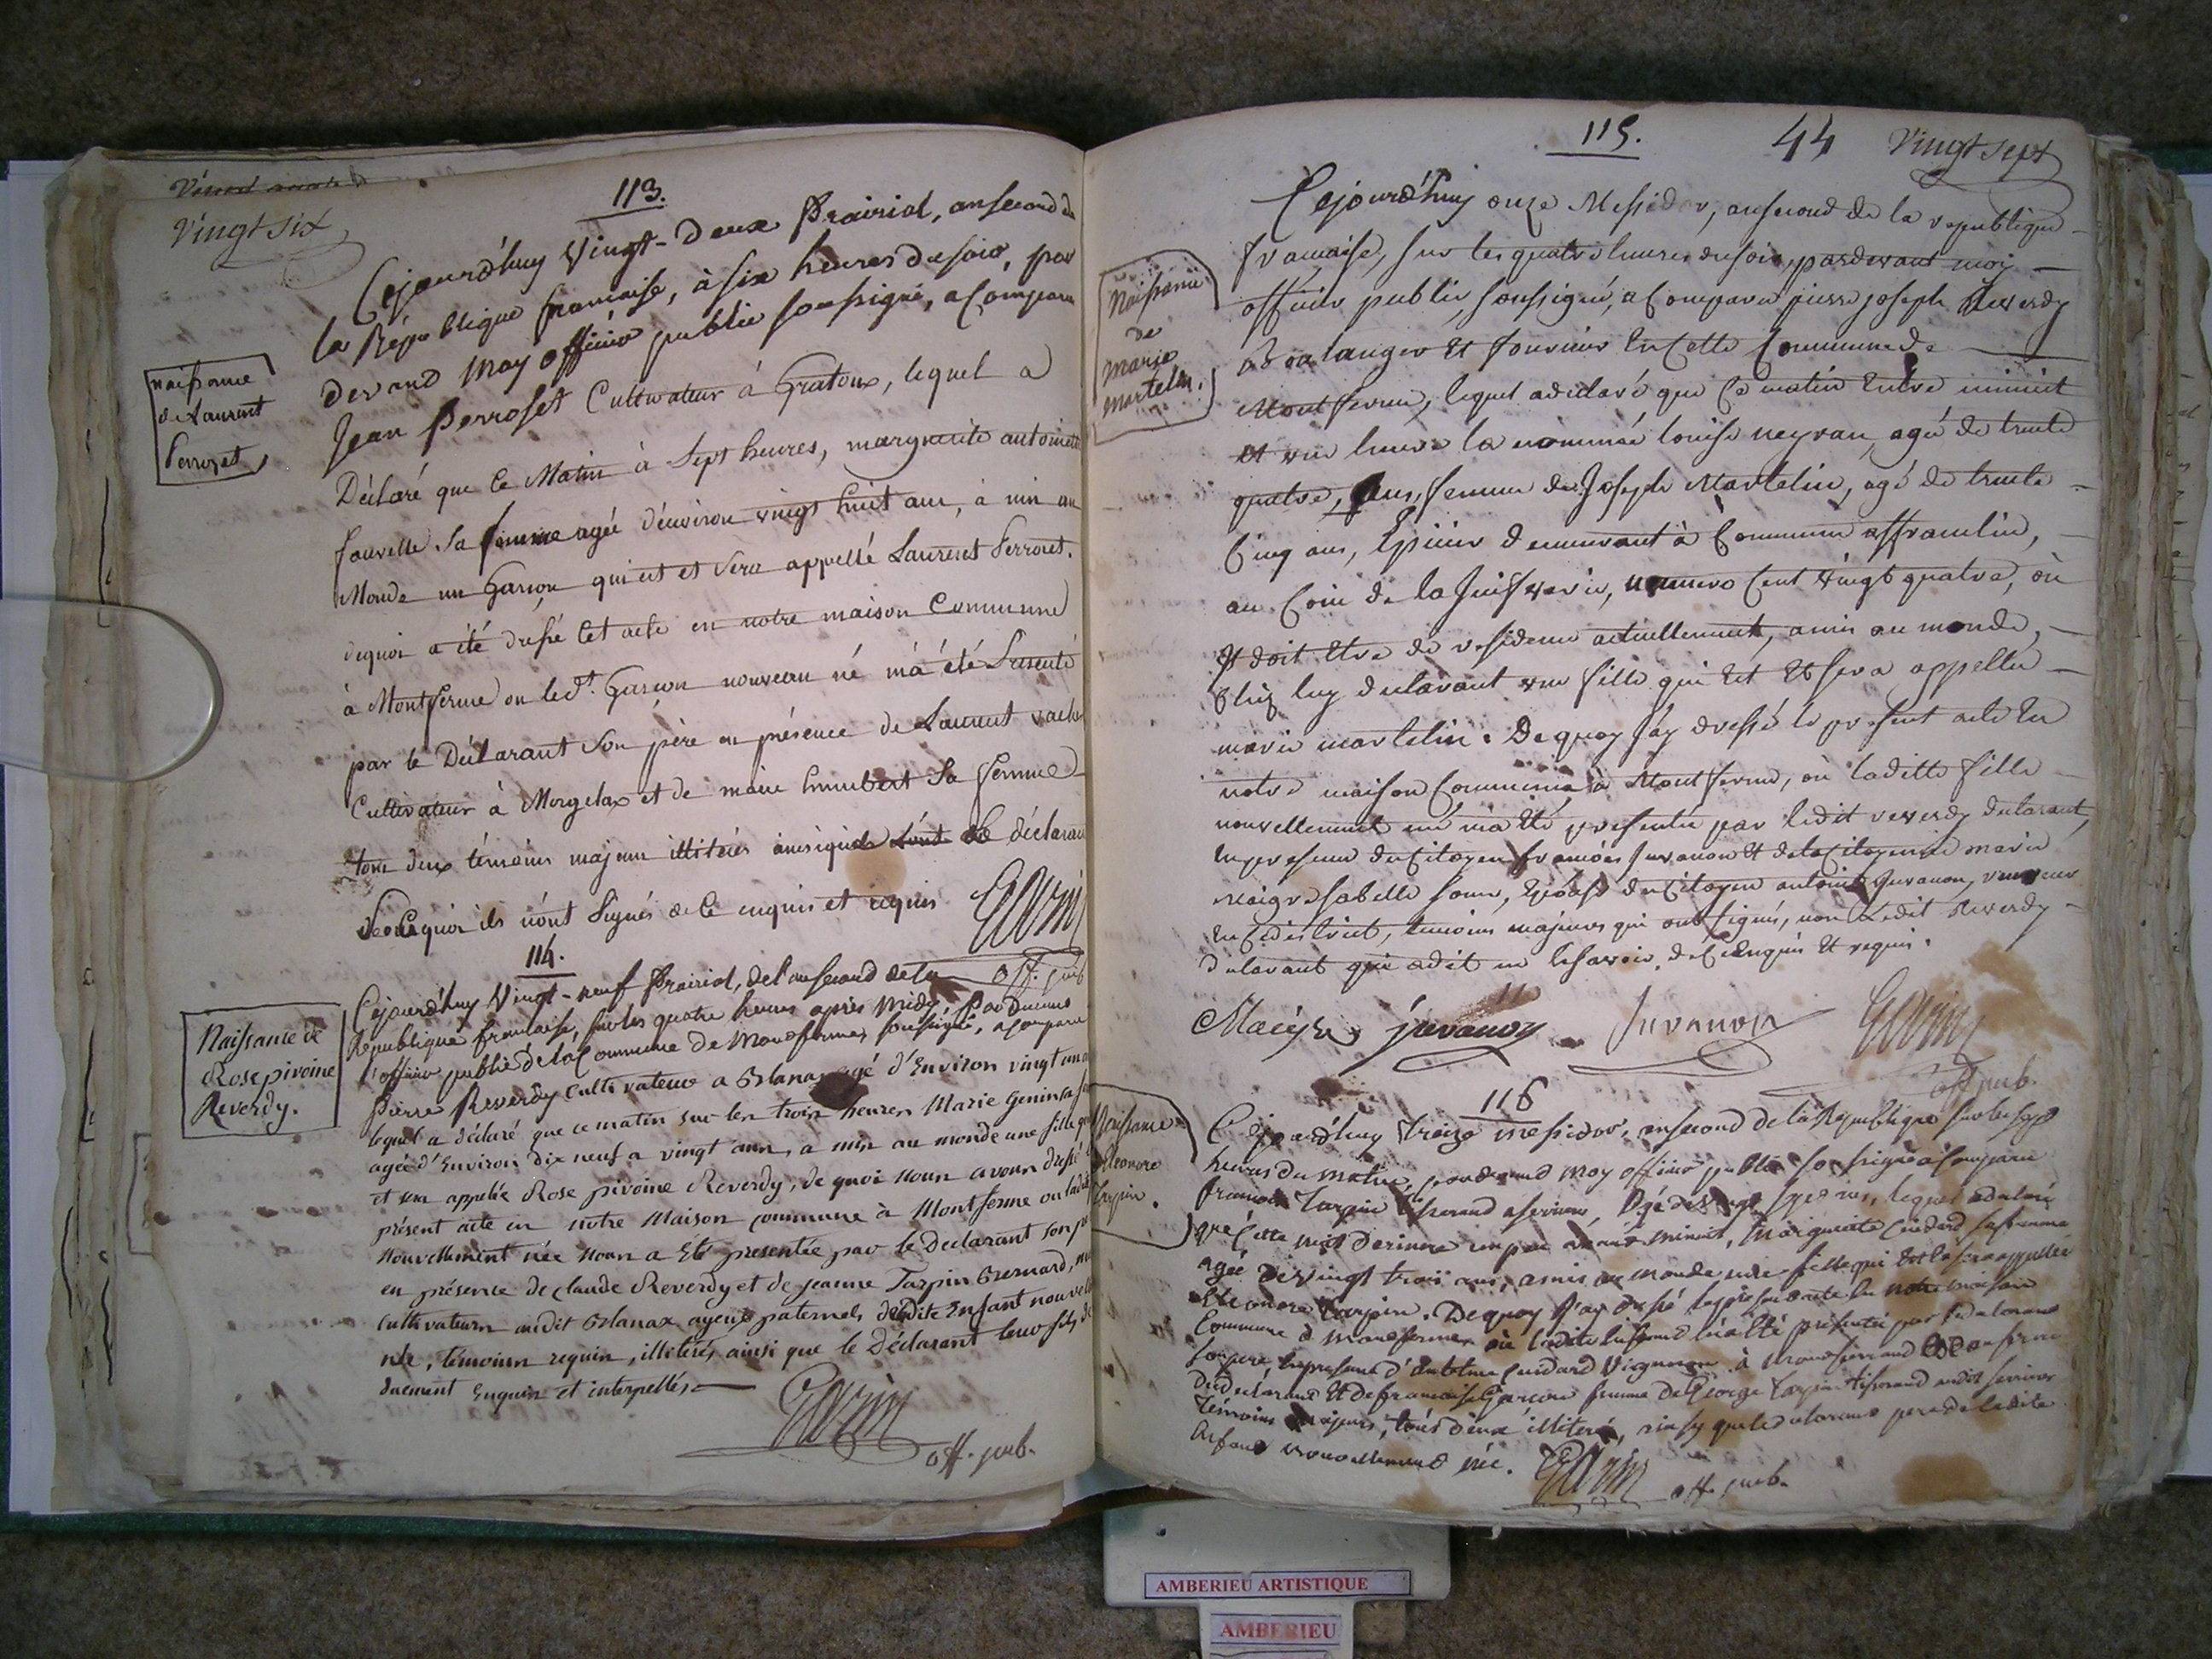 Vingt six
113.
Cejourd'huy Vingt-deux Prairial, an second de
la République francaise, à six heures du soir, par
devand moy officier public soussigné, a Comparu
Jean Perroset Cultivateur à Gratoux, lequel a
Déclaré que ce Matin à Sept heures, marguerite antoinette
fauvelle Sa femme agée d'environ vingt huit ans, à mis au
Monde un Garçon qui est et sera appellé Laurent Perroset.
dequoi a été dressé cet acte en notre maison Commune
à Montferme ou le dt. Garçon nouveau né m'a été Presenté
par le Déclarant Son père en présence de Laurent
Cultivateur à Morgelax et de marie humbert Sa femme
tous deux témoins majeurs illiterés ainsi que le déclarant
dequoi ils n'ont Signés de ce enquis et requis
off. pub
naissance
de Laurent
Perrozet
114.
Cejourd'huy Vingt-neuf Prairial, de l'an second de la
République francaise, sur les quatre heures après midy, Par Devant
l'officier public de la Commune de Montferme, soussigné, a comparu
Pierre Reverdy cultivateur a Orlanax agé d'Environ vingt un
lequel a déclaré que ce matin sur les trois heures Marie Genin sa
agée d'Environ dix neuf a vingt ans, a mis au monde une fille qui
et sera appelée Rose pivoine Reverdy, de quoi nous avons dressé le
présent acte en notre Maison commune à Montferme ou ladite
nouvellement née nous a Eté presentée par le Declarant son père
en présence de claude Reverdy et de jeanne Tarpin Bernard,
cultivateurs audit Orlanax ayeux paternels de ladite Enfant nouvelle
née, témoins requis, illiterés, ainsi que le Déclarant leur fils de
duement Enquis et interpellés
off. pub.
Naissance de
Rose pivoine
Reverdy.
115.
44
Vingt sept
Cejourd'huy onze Messidor, an second de la republique
francaise, sur les quatre heures du soir, pardevant moy
officier public, soussigné, a Comparu pierre joseph Reverdy
boulanger Et fournier En Cette Commune de
Montferme, lequel a declaré que Ce matin Entre minuit
et une heure la nommée louise neyran, agée de trente
quatre, ans, femme de Joseph Martelin, agé de trente
Cinq ans, Epicier demeurant à Commune affranchie,
au Coin de la Juifverie, numero Cent vingt quatre, où
Il doit Etre de residence actuellement, a mis au monde,
Chez luy declarant une fille qui Est Et sera appellée
marie martelin. De quoy j'ay dressé le present acte En
notre maison Commune à Montferme, où laditte fille
nouvellement née m'a Eté presentée par ledit reverdy declarant,
En presence du Citoyen francois juvanon Et de la Citoyenne marie
isabelle Epouse du Citoyen antoine Juvanon,
temoins majeurs qui ont signés, non Ledit Reverdy
declarant qui a dit ne le savoir, de Ce Enquis Et requis.
juvanon Juvanon
off pub.
Naissance
de
Marie
martelin.
116
Cejourd'huy treize messidor, an second de la République sur les sept
heures du matin, pardevand moy officier public soussigné a Comparu
francois Tarpin tisserand a serrieres, agé de vingt sept ans, lequel a declaré
que Cette nuit derniere un peu avant minuit, Marguerite Cuidard sa femme
agée de vingt trois ans, a mis au monde une fille qui Est Et sera appellée
Eleonore Tarpin. De quoy j'ay dressé le present acte En notre maison
Commune à Montferme où ladite Enfant m'a Eté presentée par le declarant
son pere, En presence d'antoine Cuidard Vigneron à
du declarant Et de francoise Garcin femme de George Tarpin tisserand audit serrieres
témoins majeurs, tous deux illiterés, ainsy que le declarant pere de ladite
Enfant nouvellement née.
off. pub.
Naissance
Eleonore
Tarpin.
AMBERIEU ARTISTIQUE
AMBERIEU